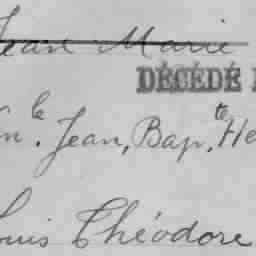 Jean Marie
DÉCÉDÉ
le. Jean, Bap.te He
Louis Théodore